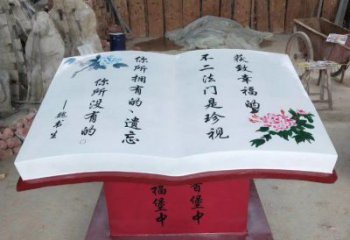 获致幸福的
不二法门是珍视
你所拥有的 遗忘
你所没有的。
——魏书生
百堡中
福堡中